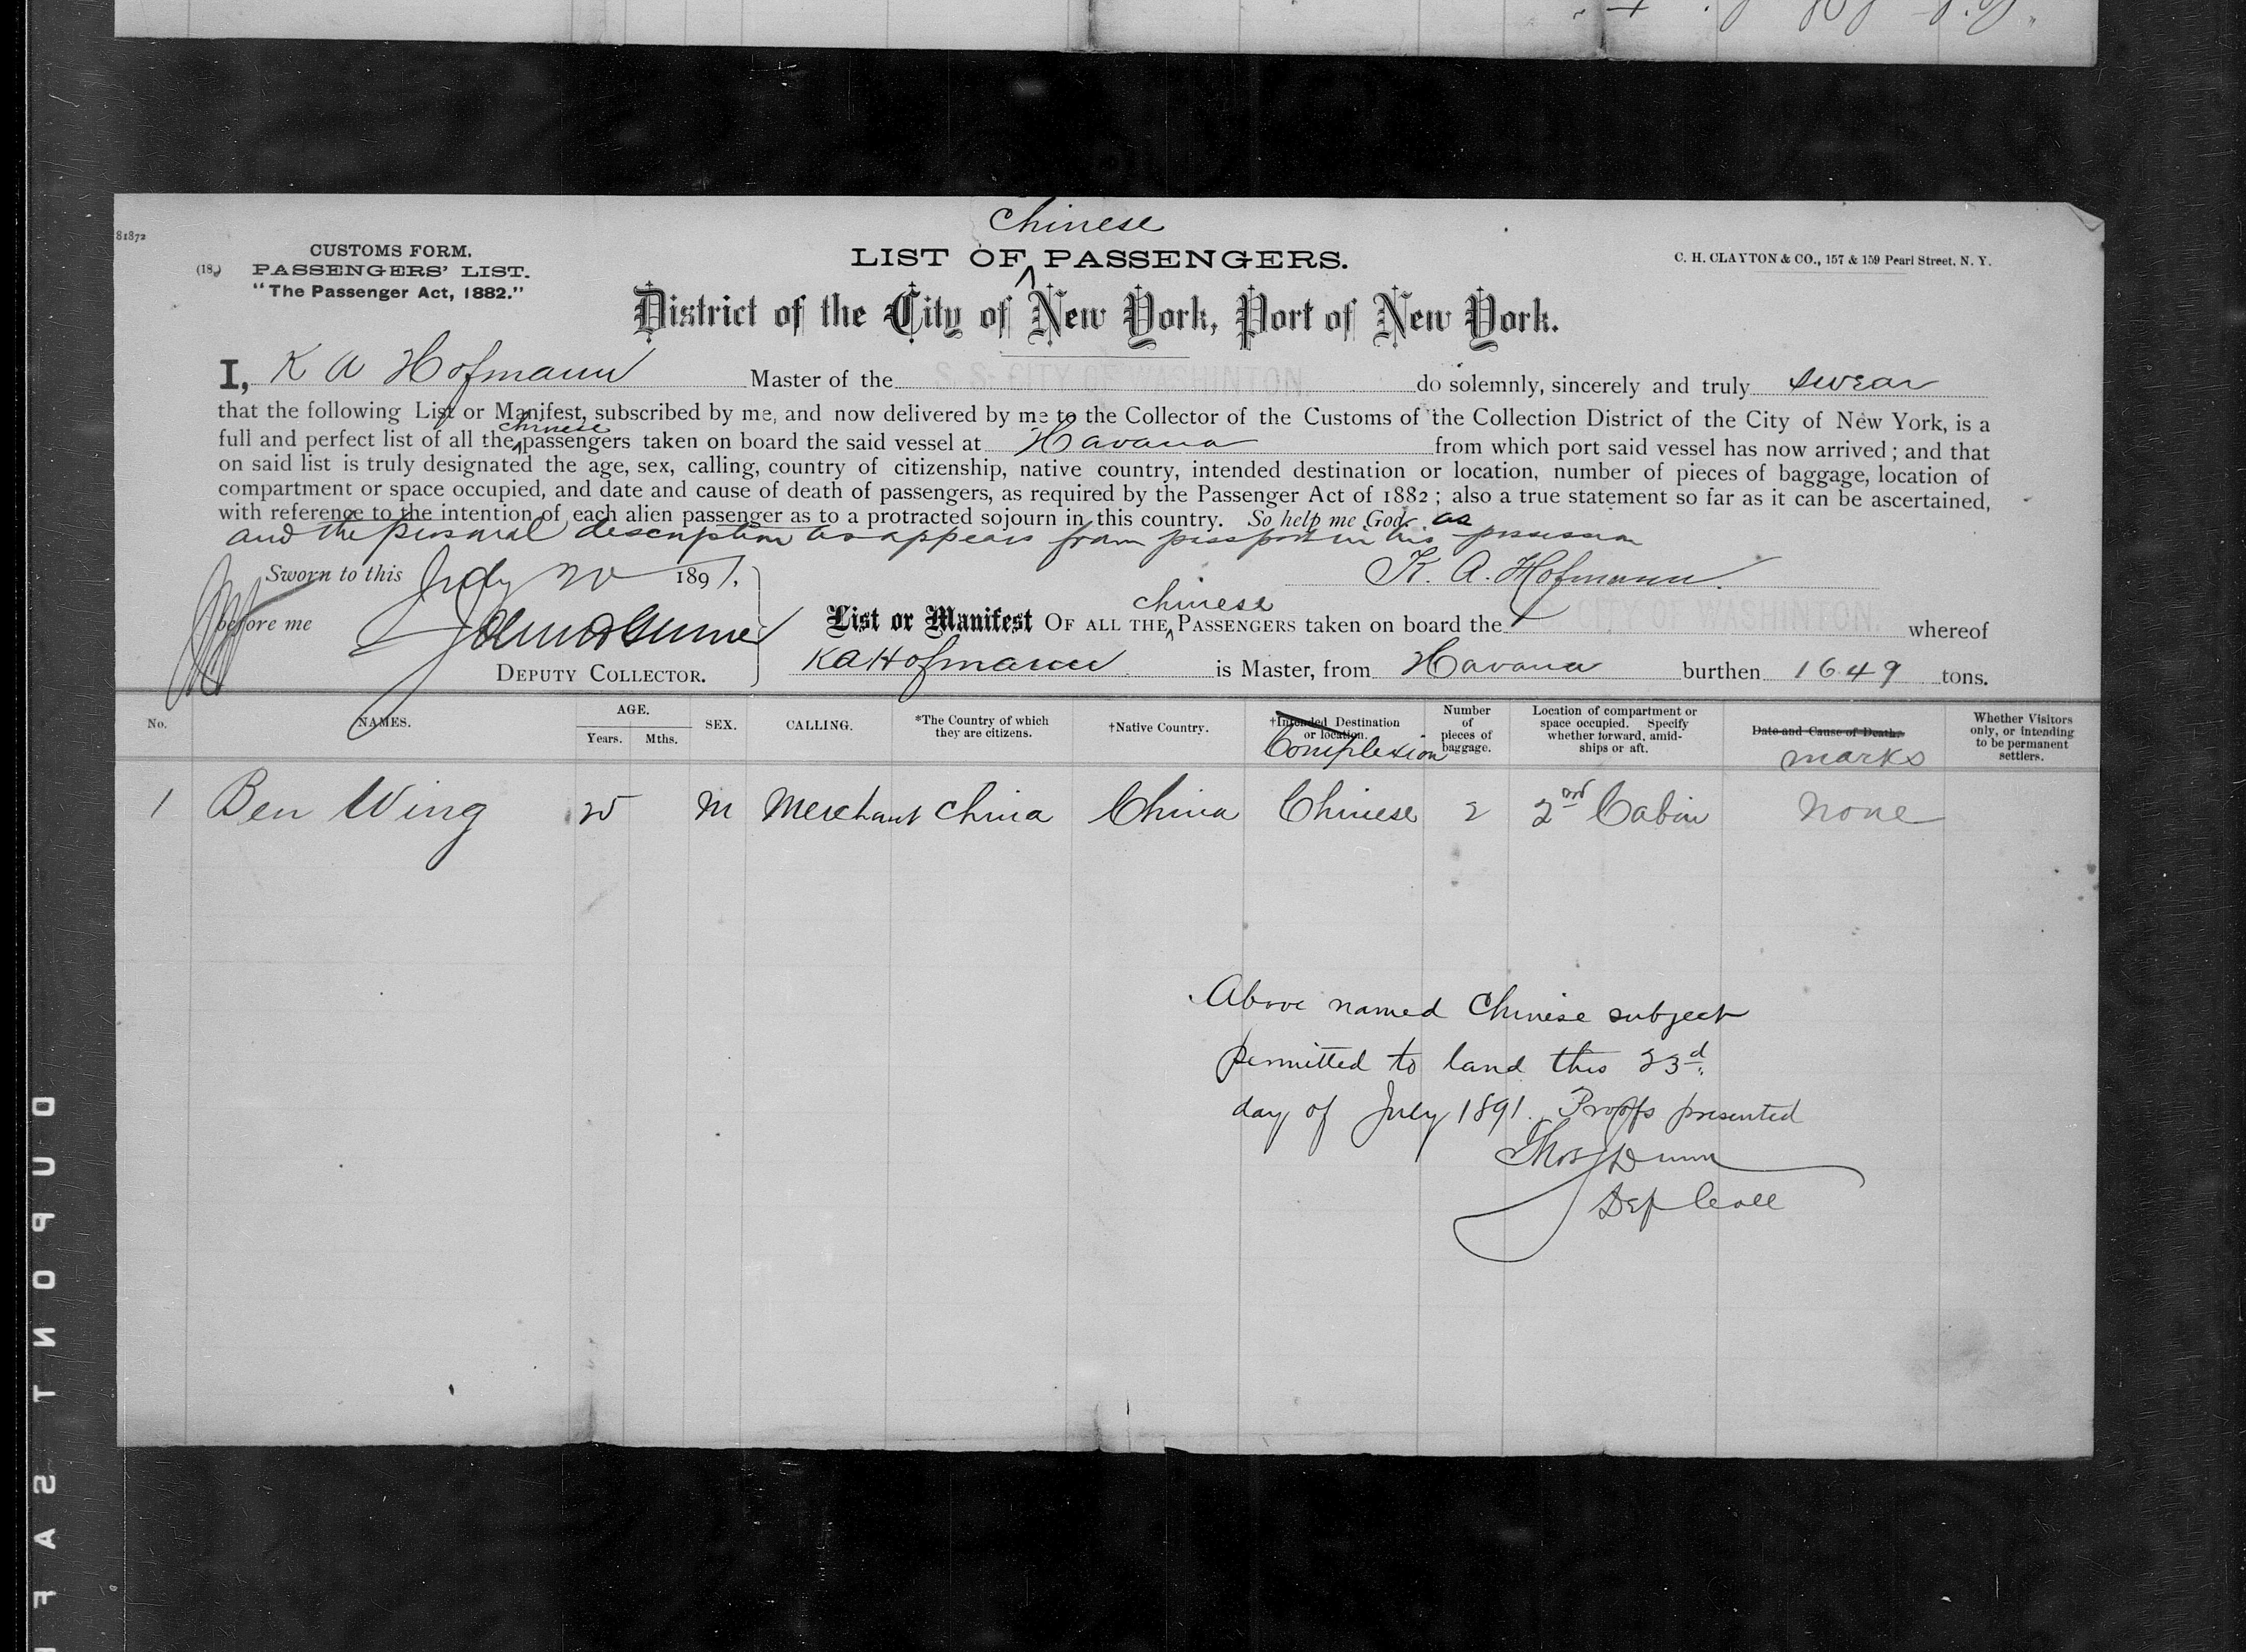 Chinese
81872
CUSTOMS FORM.
(18)
PASSENGERS' LIST.
"The Passenger Act, 1882."
LIST OF ^ PASSENGERS.
C. H. CLAYTON & CO., 157 & 159 Pearl Street, N. Y.
District of the City of New York, Port of New York.
I, K A Hofmann Master of the S. S. CITY OF WASHINTON do solemnly, sincerely and truly swear
that the following List or Manifest, subscribed by me, and now delivered by me to the Collector of the Customs of the Collection District of the City of New York, is a
full and perfect list of all the ^ Chinese passengers taken on board the said vessel at Havana from which port said vessel has now arrived; and that
on said list is truly designated the age, sex, calling, country of citizenship, native country, intended destination or location, number of pieces of baggage, location of
compartment or space occupied, and date and cause of death of passengers, as required by the Passenger Act of 1882; also a true statement so far as it can be ascertained,
with reference to the intention of each alien passenger as to a protracted sojourn in this country. So help me God. as
and the personal description as appears from passport in his possession
Sworn to this July 20 1891.
K. A. Hofmann.
before me
DEPUTY COLLECTOR.
chinese
List or Manifest OF ALL THE ^ PASSENGERS taken on board the CITY OF WASHINTON. whereof
K A Hofmann is Master, from Havana burthen 1649 tons.
No. NAMES. AGE. Years. Mths. SEX. CALLING. *The Country of which they are citizens. †Native Country. †Intended Destination or location. Complexion Number of pieces of baggage. Location of compartment or space occupied. Specify whether forward, amidships or aft. Date and Cause of Death. marks Whether Visitors only, or intending to be permanent settlers.
1 Ben Wing 25 M Merchant China China Chinese 2 2nd Cabin None
Above named Chinese subject
permitted to land this 23d.
day of July 1891. Proofs presented
Thos J Dunn
Dep Coll
DUPONT SAF